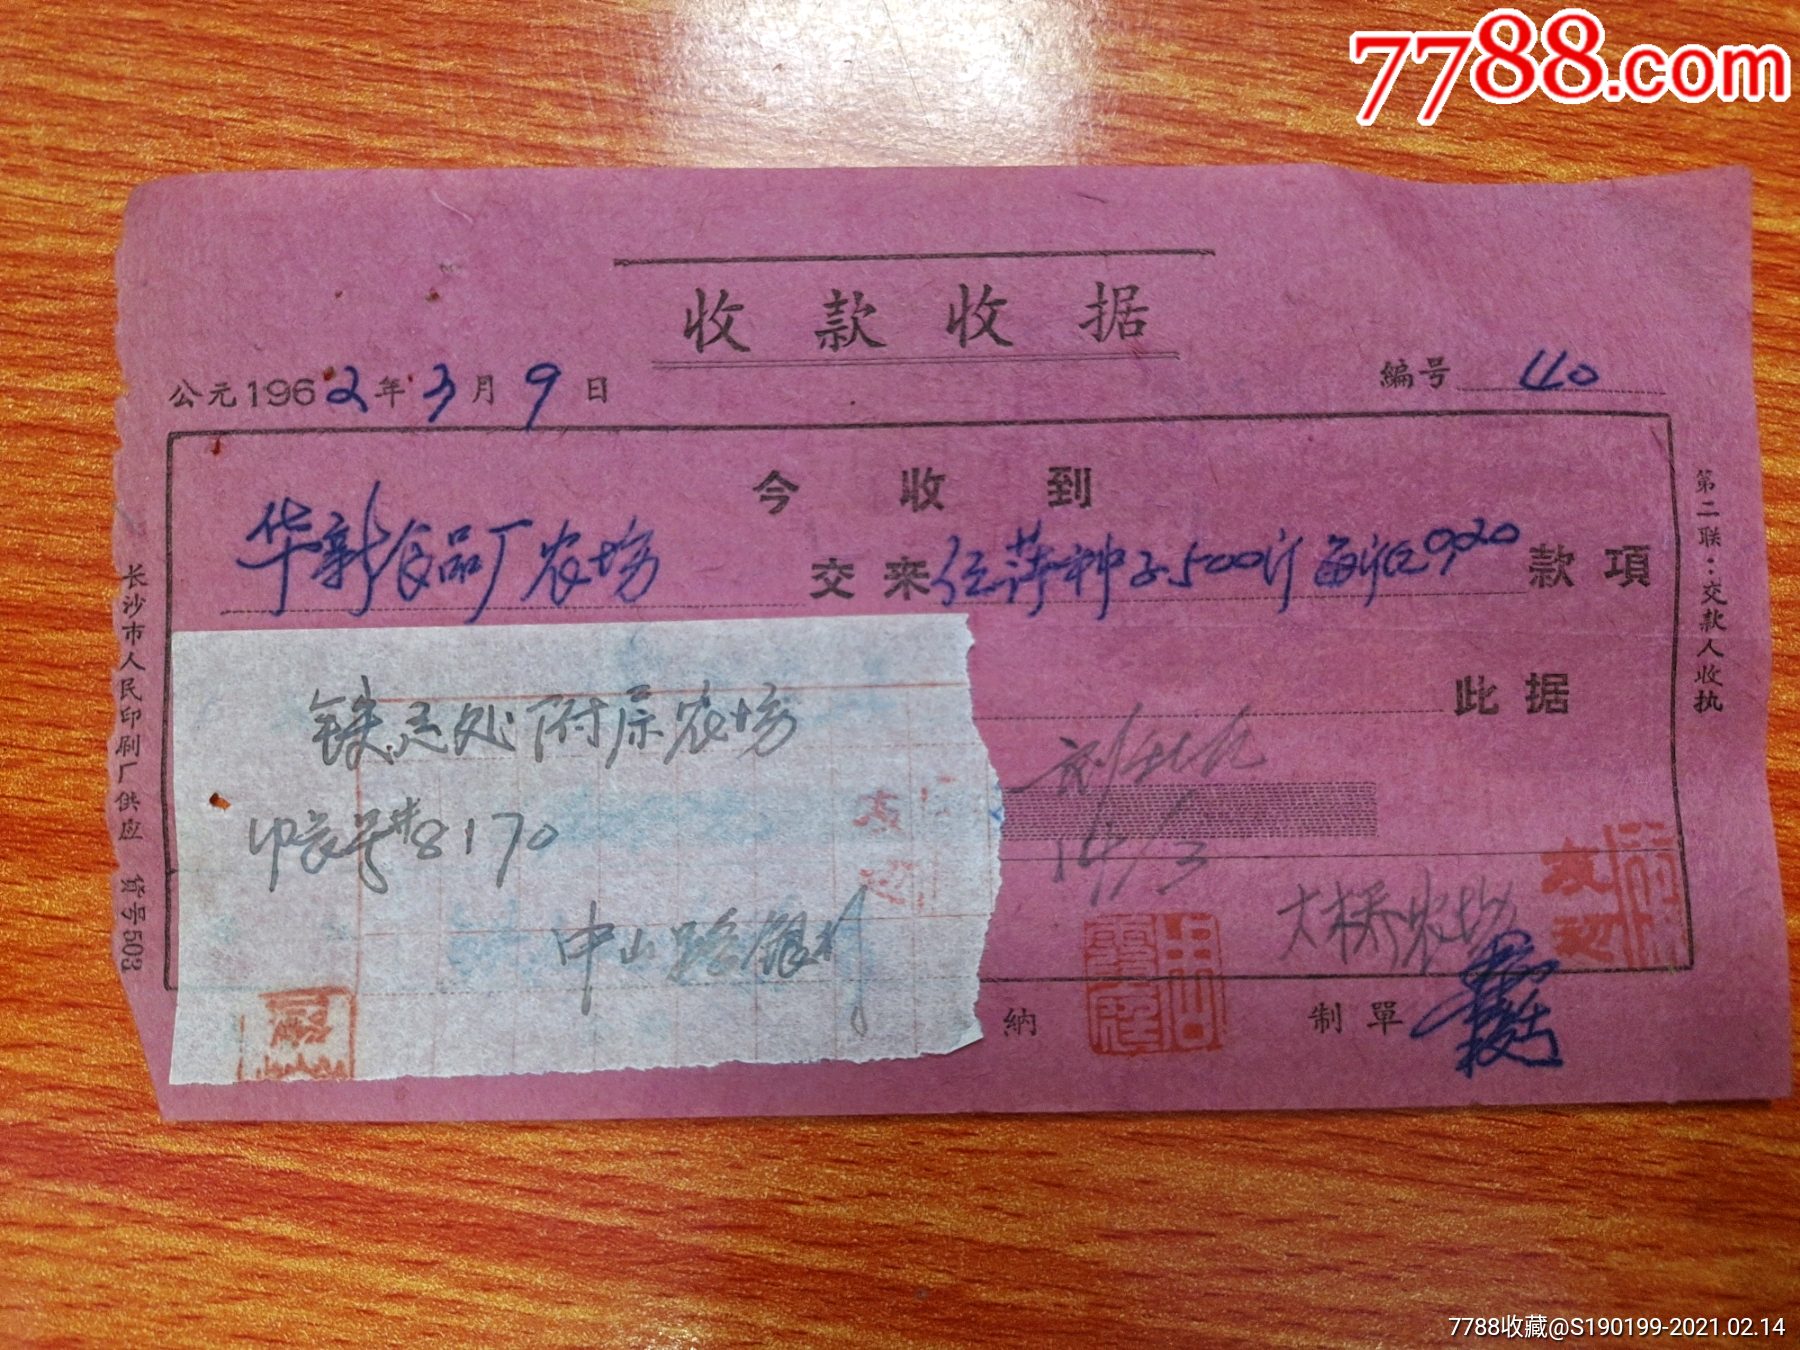 7788.com
收款收据
公元1962年3月9日
编号 40
今收到
华新食品厂农场 交来 种子500斤 0.20 款項
此据
铁 处附属农场
帐号#8170
中山路银行
14/3
大桥农场
納
制單
第二联：交款人收执
长沙市人民印刷厂供应 货号503
7788收藏@S190199-2021.02.14